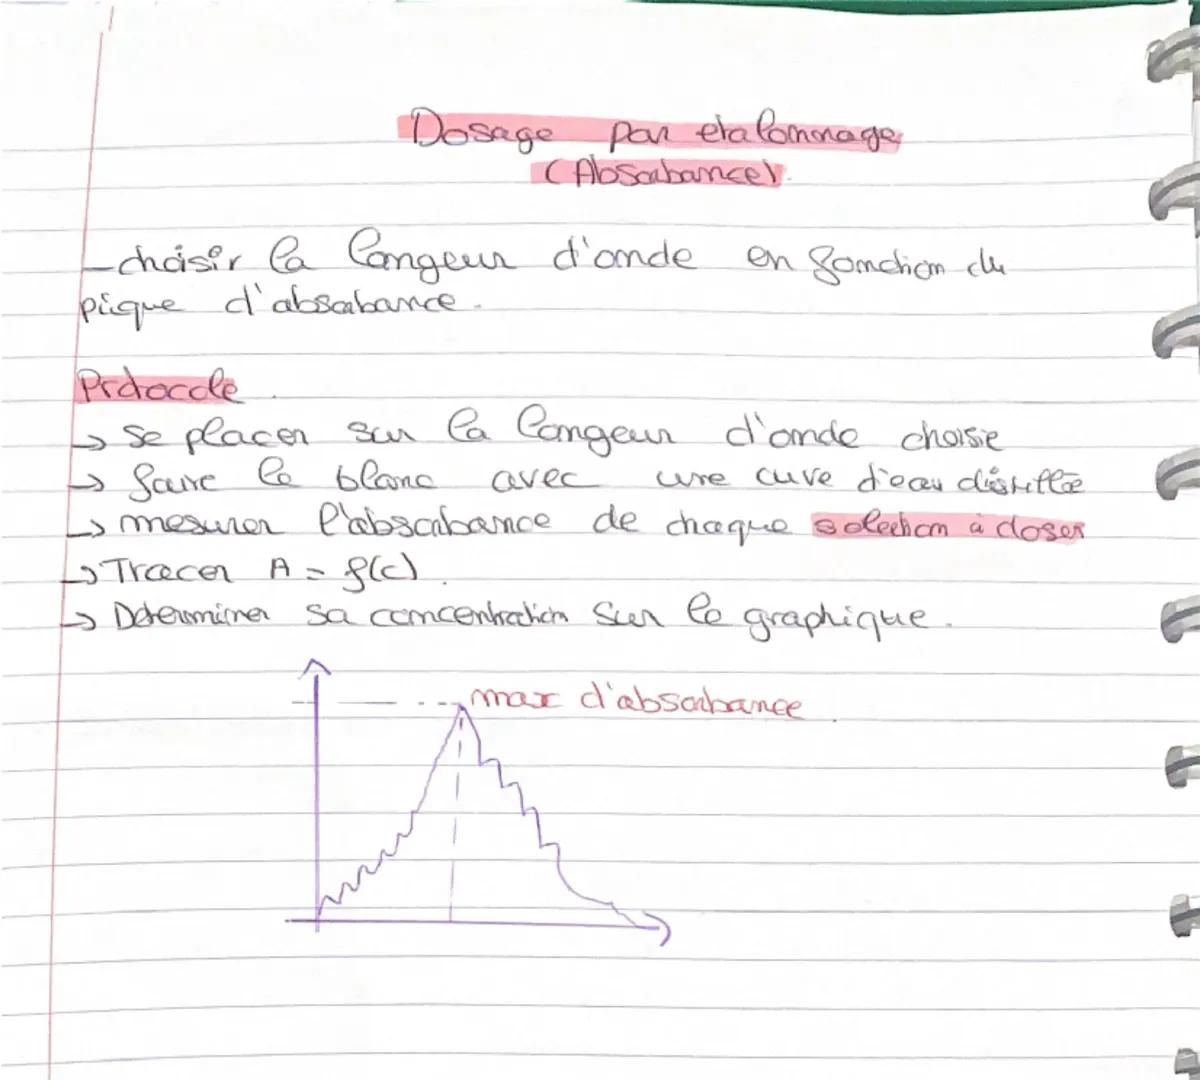 Dosage par etalonnage
(Absorbance)
- choisir la longeur d'onde en fonction du
pique d'absorbance.
Protocole
→ se placer sur la longeur d'onde choisie
→ faire le blanc avec une cuve d'eau distillée
→ mesurer l'absorbance de chaque solection à doser
→ Tracer A = f(c).
→ Determiner sa concentration sur le graphique.
max d'absorbance